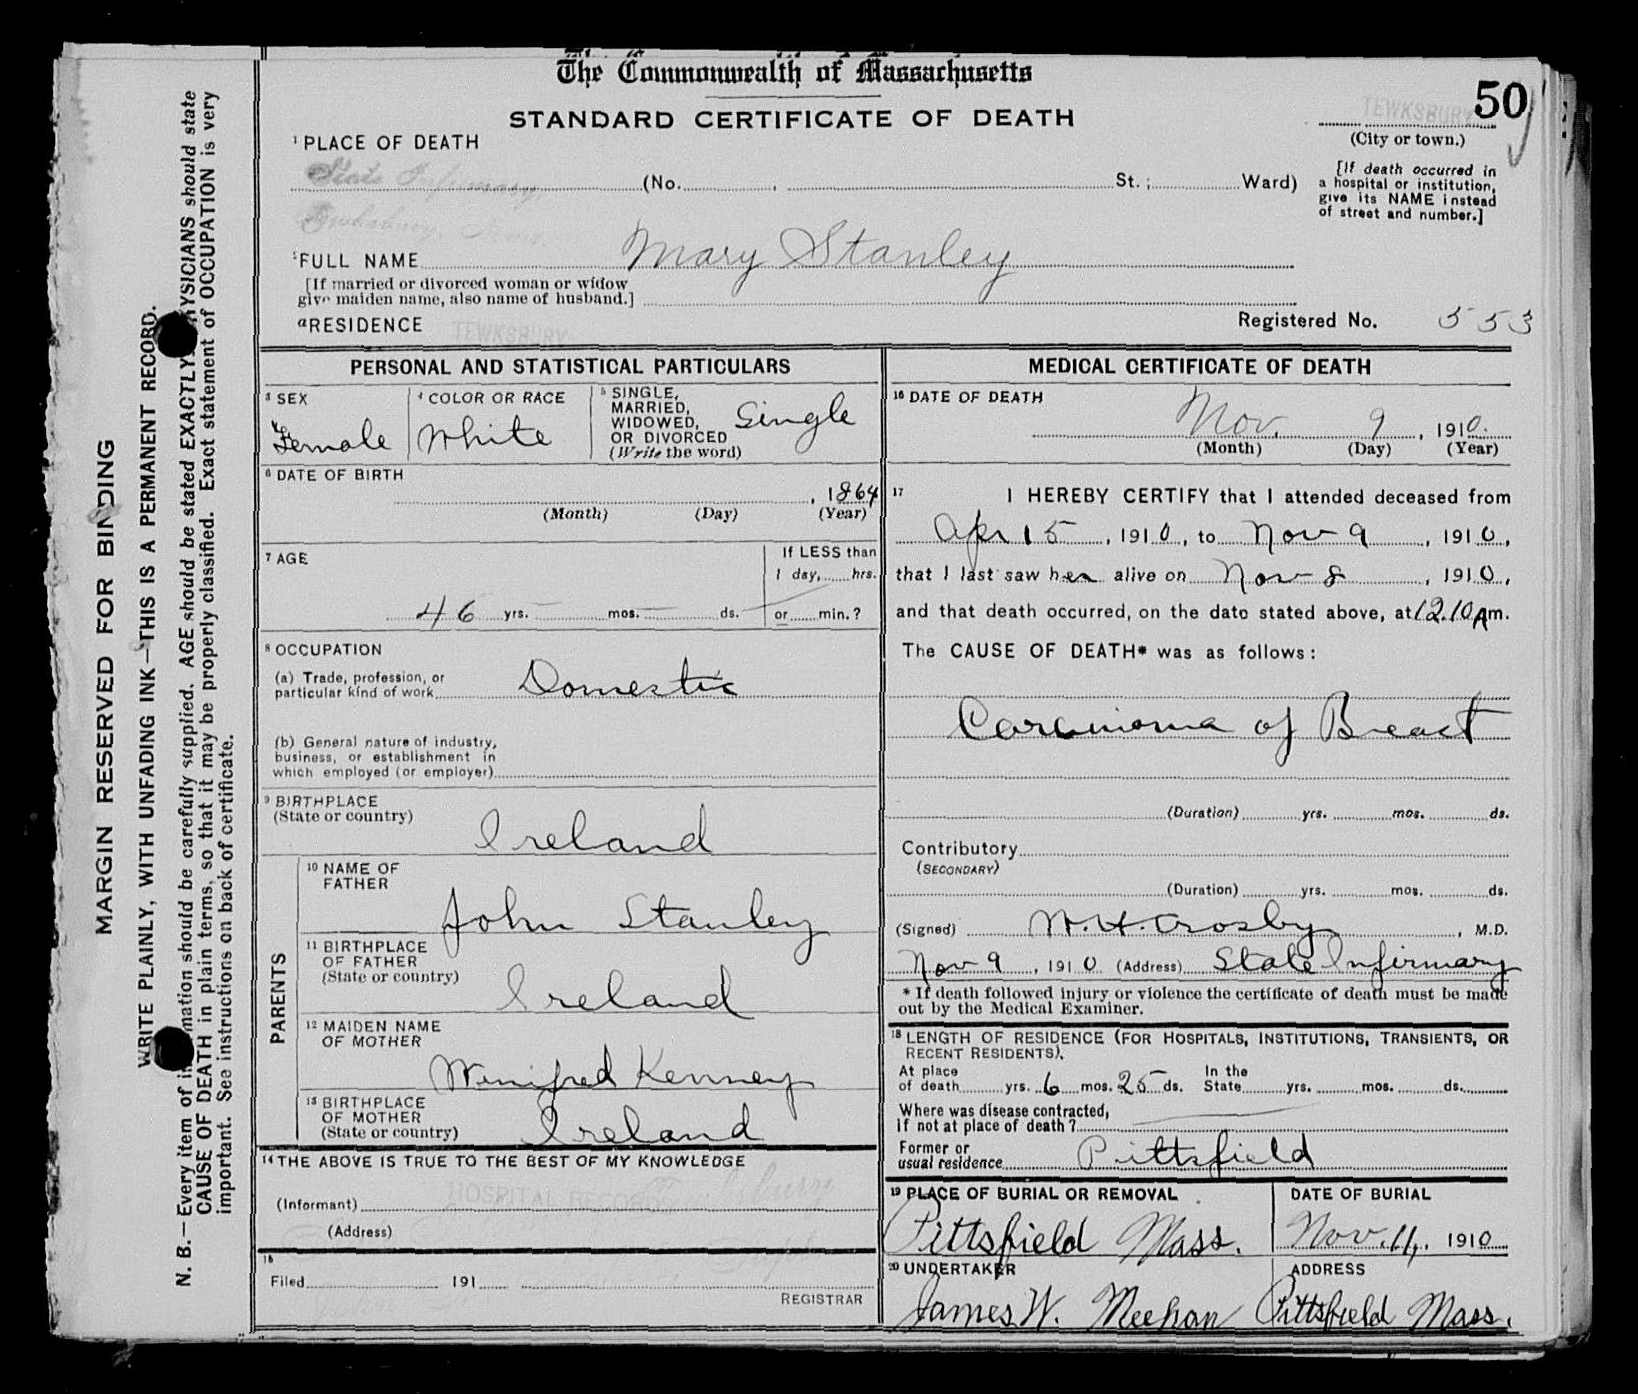 The Commonwealth of Massachusetts
50
STANDARD CERTIFICATE OF DEATH
TEWKSBURY
(City or town.)
1 PLACE OF DEATH
State Infirmary,
(No. , St. ; Ward)
[If death occurred in
a hospital or institution,
give its NAME instead
of street and number.]
Tewksbury, Mass.
FULL NAME Mary Stanley
[If married or divorced woman or widow
give maiden name, also name of husband.]
a RESIDENCE TEWKSBURY
Registered No. 553
PERSONAL AND STATISTICAL PARTICULARS
3 SEX
Female
4 COLOR OR RACE
White
5 SINGLE,
MARRIED,
WIDOWED,
OR DIVORCED
(Write the word)
Single
6 DATE OF BIRTH
, 1864
(Month) (Day) (Year)
7 AGE
46 yrs. mos. ds.
If LESS than
1 day, hrs.
or min.?
8 OCCUPATION
(a) Trade, profession, or
particular kind of work Domestic
(b) General nature of industry,
business, or establishment in
which employed (or employer)
9 BIRTHPLACE
(State or country)
Ireland
PARENTS
10 NAME OF
FATHER
John Stanley
11 BIRTHPLACE
OF FATHER
(State or country)
Ireland
12 MAIDEN NAME
OF MOTHER
Winifred Kenney
13 BIRTHPLACE
OF MOTHER
(State or country)
Ireland
14 THE ABOVE IS TRUE TO THE BEST OF MY KNOWLEDGE
HOSPITAL RECORDS
(Informant)
(Address)
15
Filed 191
REGISTRAR
MEDICAL CERTIFICATE OF DEATH
16 DATE OF DEATH
Nov. 9 , 1910.
(Month) (Day) (Year)
17 I HEREBY CERTIFY that I attended deceased from
Apr 15 , 1910, to Nov 9 , 1910,
that I last saw her alive on Nov 8 , 1910,
and that death occurred, on the date stated above, at 12.10 Am.
The CAUSE OF DEATH* was as follows:
Carcinoma of Breast
(Duration) yrs. mos. ds.
Contributory
(SECONDARY)
(Duration) yrs. mos. ds.
(Signed) W. H. Crosby , M.D.
Nov 9 , 1910 (Address) State Infirmary
* If death followed injury or violence the certificate of death must be made
out by the Medical Examiner.
18 LENGTH OF RESIDENCE (FOR HOSPITALS, INSTITUTIONS, TRANSIENTS, OR
RECENT RESIDENTS).
At place
of death yrs. 6 mos. 25 ds.
In the
State yrs. mos. ds.
Where was disease contracted,
if not at place of death?
Former or
usual residence Pittsfield
19 PLACE OF BURIAL OR REMOVAL
Pittsfield Mass.
DATE OF BURIAL
Nov. 11, 1910
20 UNDERTAKER
James W. Meehan
ADDRESS
Pittsfield Mass.
MARGIN RESERVED FOR BINDING
WRITE PLAINLY, WITH UNFADING INK—THIS IS A PERMANENT RECORD.
N. B.—Every item of mation should be carefully supplied. AGE should be stated EXACTLY. YSICIANS should state
CAUSE OF DEATH in plain terms, so that it may be properly classified. Exact statement of OCCUPATION is very
important. See instructions on back of certificate.